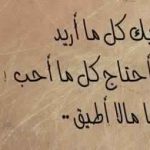 يك كل ما أريد
أحتاج كل ما أحب !
ا مالا أطيق ..